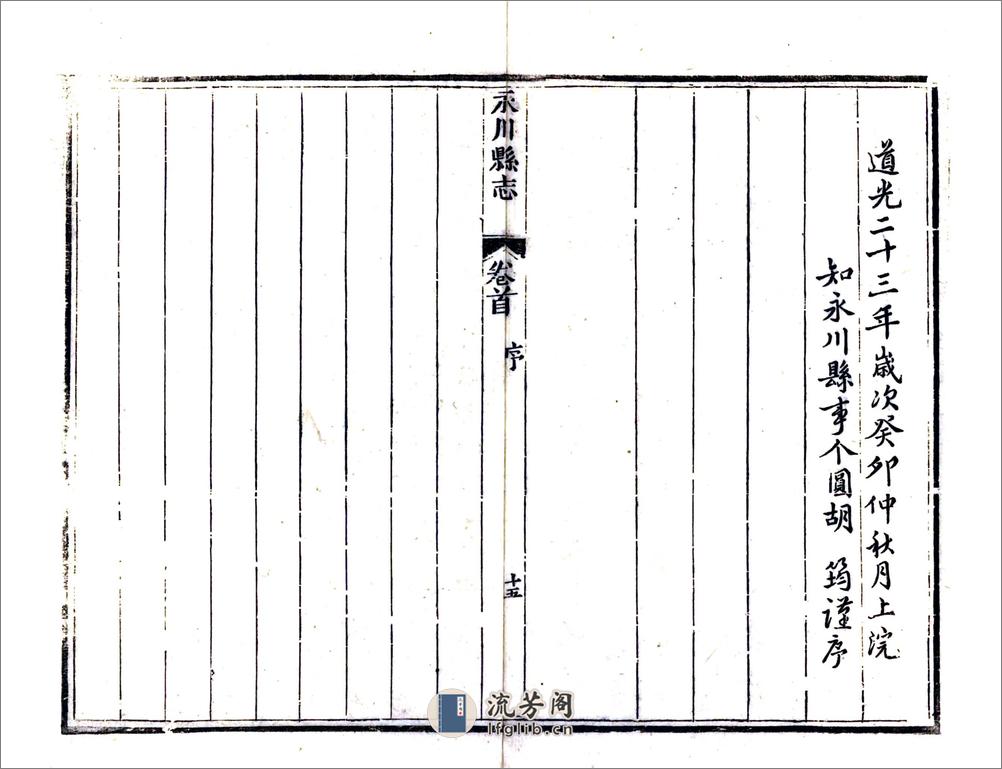 道光二十三年歲次癸卯仲秋月上浣
知永川縣事个圓胡 筠謹序
永川縣志
卷首
序
十五
流芳阁
lfglib.cn